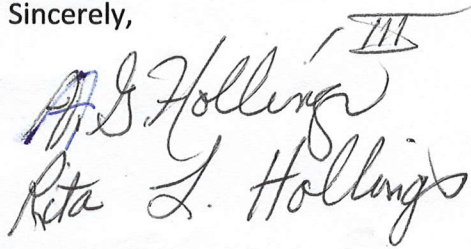 Sincerely,
A. G. Hollings III
Rita L. Hollings